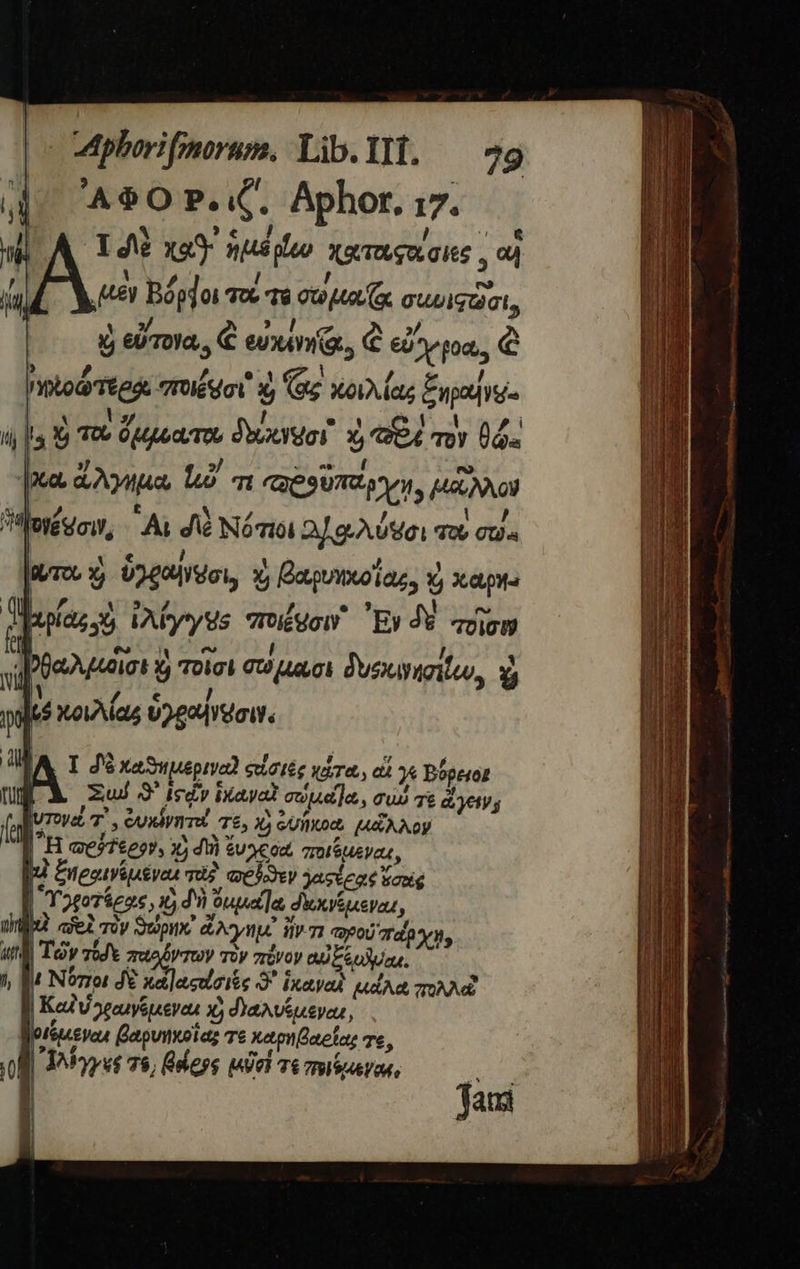 Aphorismorum. Lib. III. 79
ἈΦΟΡ. ιζ. Aphor. 17.
Αἱ δὲ καθ' ἡμέρην καταστάσιες, αἱ
μὲν Βόρειοι τά τε σώματα συνιστᾶσι,
καὶ εὔτονα, καὶ εὐκίνητα, καὶ εὔχροα, καὶ
ποιέουσι καὶ τὰς κοιλίας ξηραίνου-
καὶ τὰ ὄμματα δάκνουσι καὶ περὶ τὸν θώ-
ἄλγημα ἤν τι προϋπάρχῃ, μᾶλλον
Αἱ δὲ Νότιοι διαλύουσι τὰ σώ-
καὶ ὑγραίνουσι, καὶ βαρυηκοΐας, καὶ καρη-
καὶ ἰλίγγους ποιέουσιν· Ἐν δὲ τοῖσιν
καὶ τοῖσι σώμασι δυσκινησίην, καὶ
κοιλίας ὑγραίνουσιν.
Αἱ δὲ καθημεριναὶ στάσιες κάτα, αἵ γε Βόρειοι
Σὺν θ' ἱστᾶν ἱκαναὶ σώματα, σύν τε ἄγειν,
τ', εὐκίνητά τε, καὶ εὐήκοα μᾶλλον
Ἢ πρότερον, καὶ δὴ εὔχροα ποιεύμεναι,
ξηραινέμεναι τὰς πρόσθεν γαστέρας οὔσας
Ὑγροτέρας, καὶ δὴ ὄμματα δακνέμεναι,
περὶ τὸν θώρηκ' ἄλγημ' ἤν τι προϋπάρχῃ,
Τῶν τόδε παρόντων τὸν πόνον αὐξέμεναι.
Νότιοι δὲ καταστάσιές θ' ἱκαναὶ μάλα πολλὰ
Καὶ ὑγραινέμεναι καὶ διαλυέμεναι,
βαρυηκοΐας τε καρηβαρείας τε,
Ἰλίγγους τε, βάρος μυσί τε ποιεύμεναι.
Jani